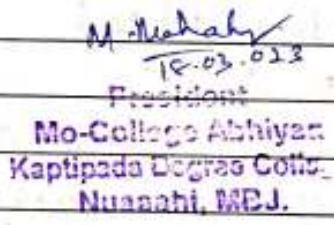 M. Mohahy
18.03.023
President
Mo-College Abhiyan
Kaptipada Degree Colle
Nuasahi, MBJ.